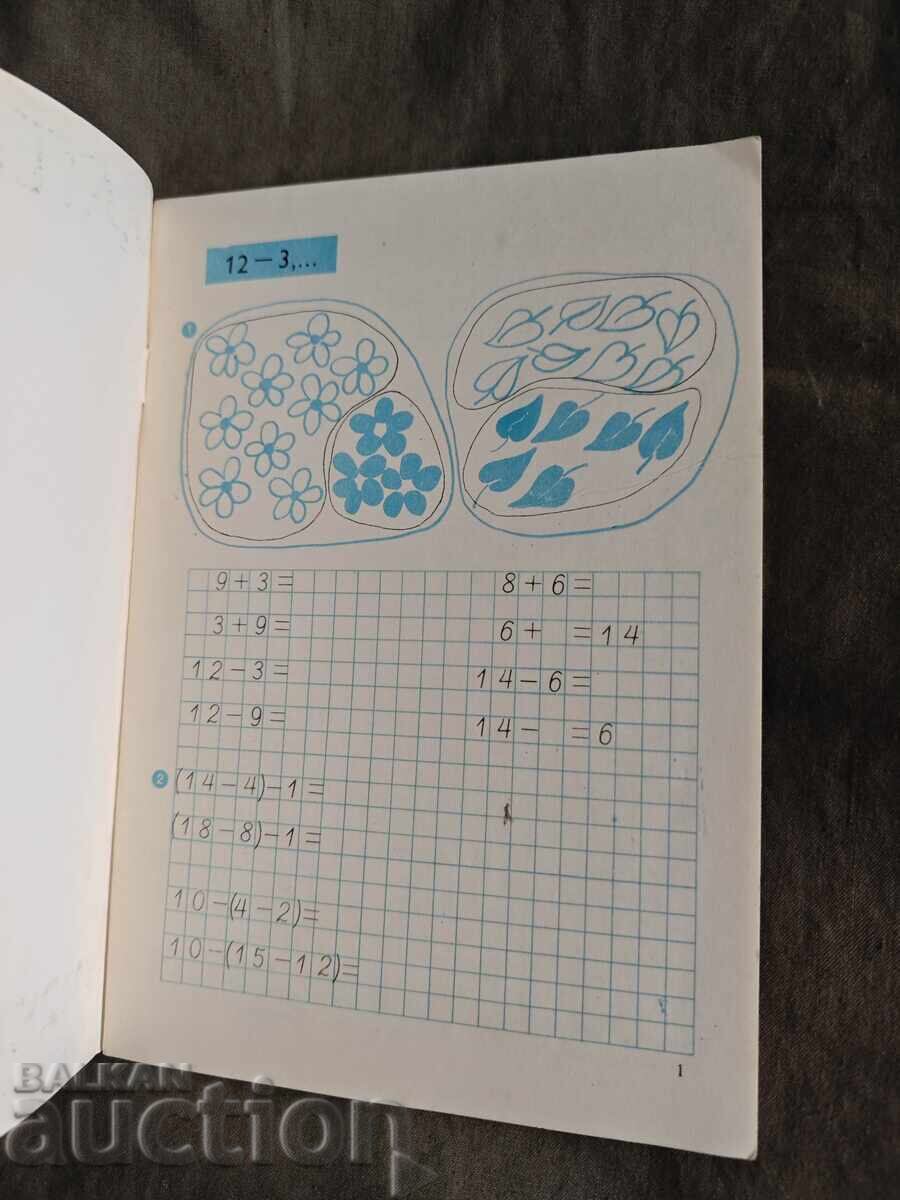 12 — 3,...
1
9 + 3 =
3 + 9 =
12 - 3 =
12 - 9 =
8 + 6 =
6 + = 14
14 - 6 =
14 - = 6
2
(14 - 4) - 1 =
(18 - 8) - 1 =
10 - (4 - 2) =
10 - (15 - 12) =
1
BALKAN
auction